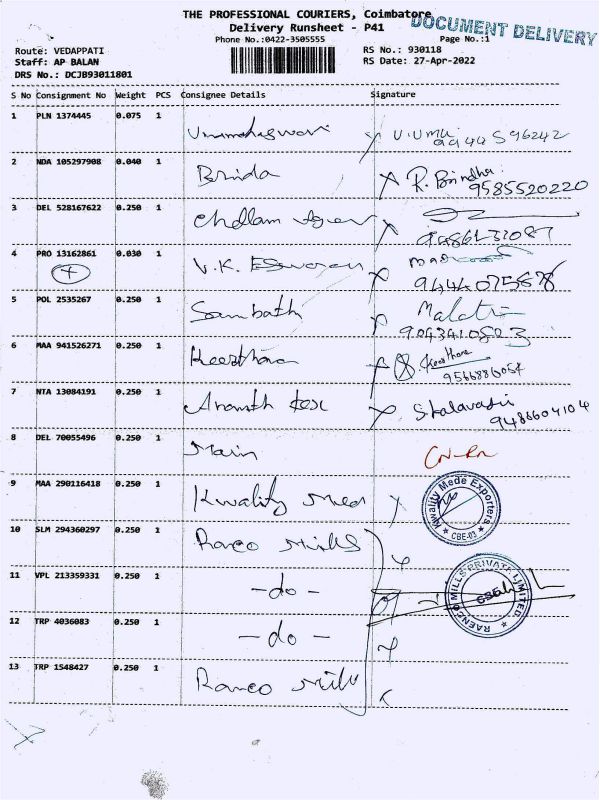 THE PROFESSIONAL COURIERS, Coimbatore
DOCUMENT DELIVERY
Delivery Runsheet - P41
Phone No.:0422-3505555
Page No.:1
Route: VEDAPPATI
RS No.: 930118
Staff: AP BALAN
RS Date: 27-Apr-2022
DRS No.: DCJB93011801
S No Consignment No Weight PCS Consignee Details Signature
1 PLN 1374445 0.075 1 Umamaheswari V.Uma
2 NDA 105297908 0.040 1 Brida R. Brindha
9585520220
3 DEL 528167622 0.250 1 Chellam
4 PRO 13162861 0.030 1 V.K. Eswaran
5 POL 2535267 0.250 1 Sambath
6 MAA 941526271 0.250 1 Keerthana Keerthana
7 NTA 13084191 0.250 1 Ananth
9486604104
8 DEL 70055496 0.250 1 Main
9 MAA 290116418 0.250 1 Kwality Med
Kwality Mede Exporters
CBE-03
10 SLM 294360297 0.250 1 Raneo Mills
11 VPL 213359331 0.250 1 -do-
RAENCO MILLS PRIVATE LIMITED
12 TRP 4036083 0.250 1 -do-
13 TRP 1548427 0.250 1 Raneo Mills